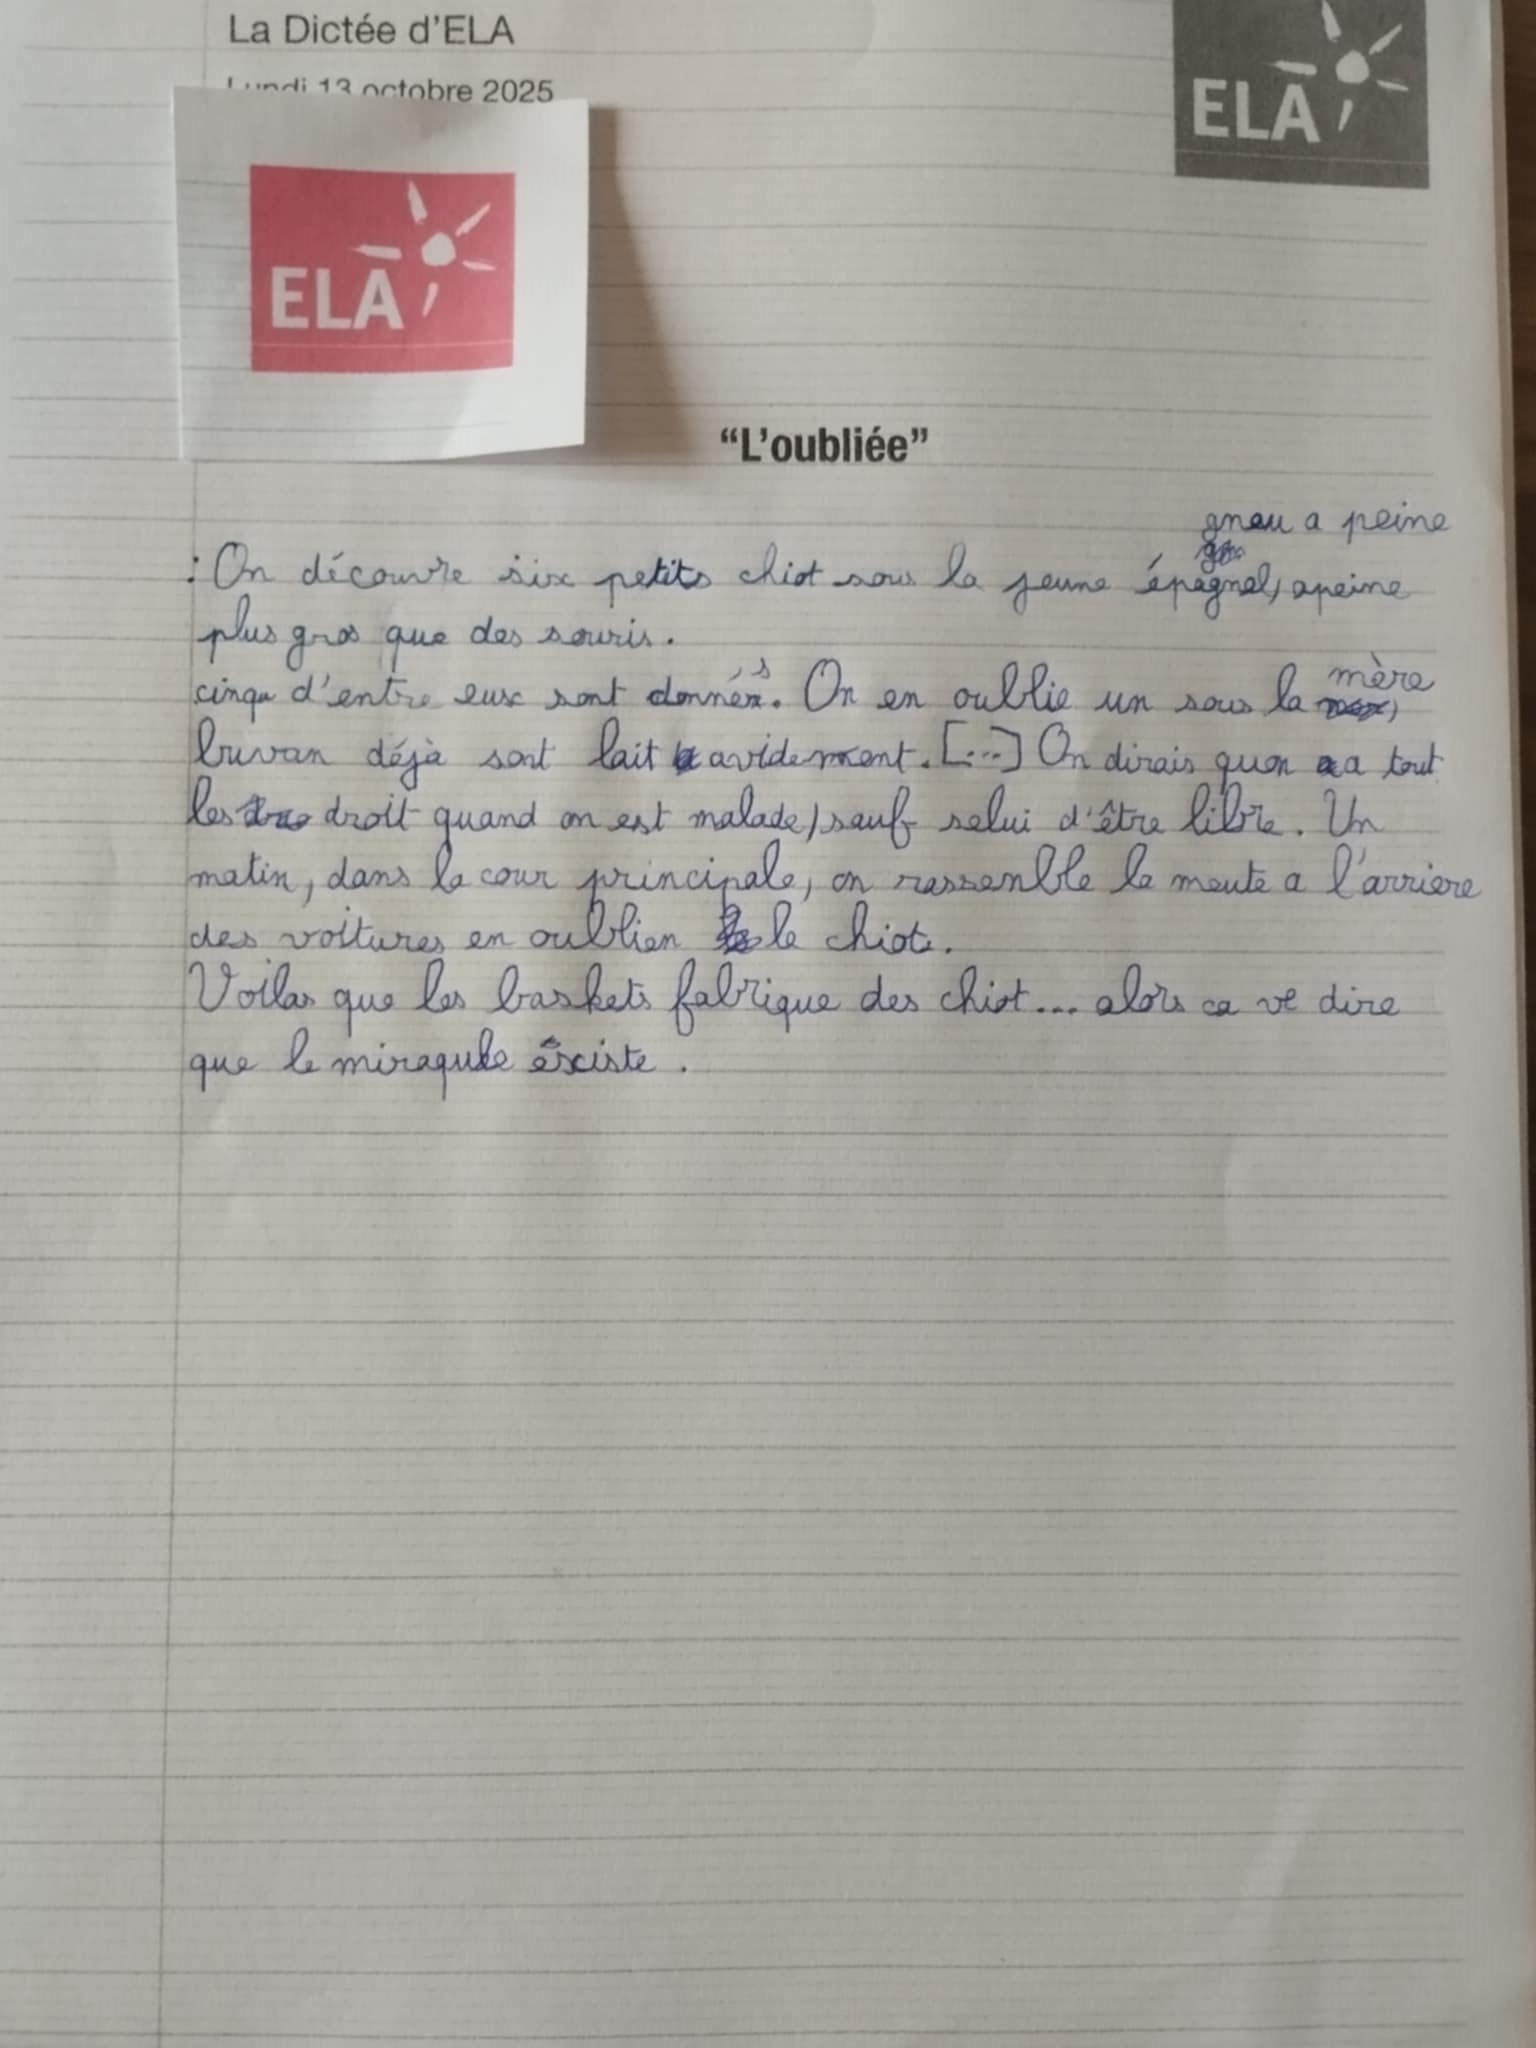 La Dictée d'ELA
Lundi 13 octobre 2025
ELA
ELA
"L'oubliée"
gneu a peine
: On découvre six petits chiot sous la jeune épagnel, apeine
plus gros que des souris.
cinqu d'entre eux sont donnés. On en oublie un sous la mère
buvan déjà sont lait avidement. [...] On dirais quon a tout
les droit quand on est malade, sauf selui d'être libre. Un
matin, dans la cour principale, on rassenble la meute a l'arrière
des voitures en oublien le chiot.
Voilas que les baskets fabrique des chiot... alors ca ve dire
que le miraqule éxciste.